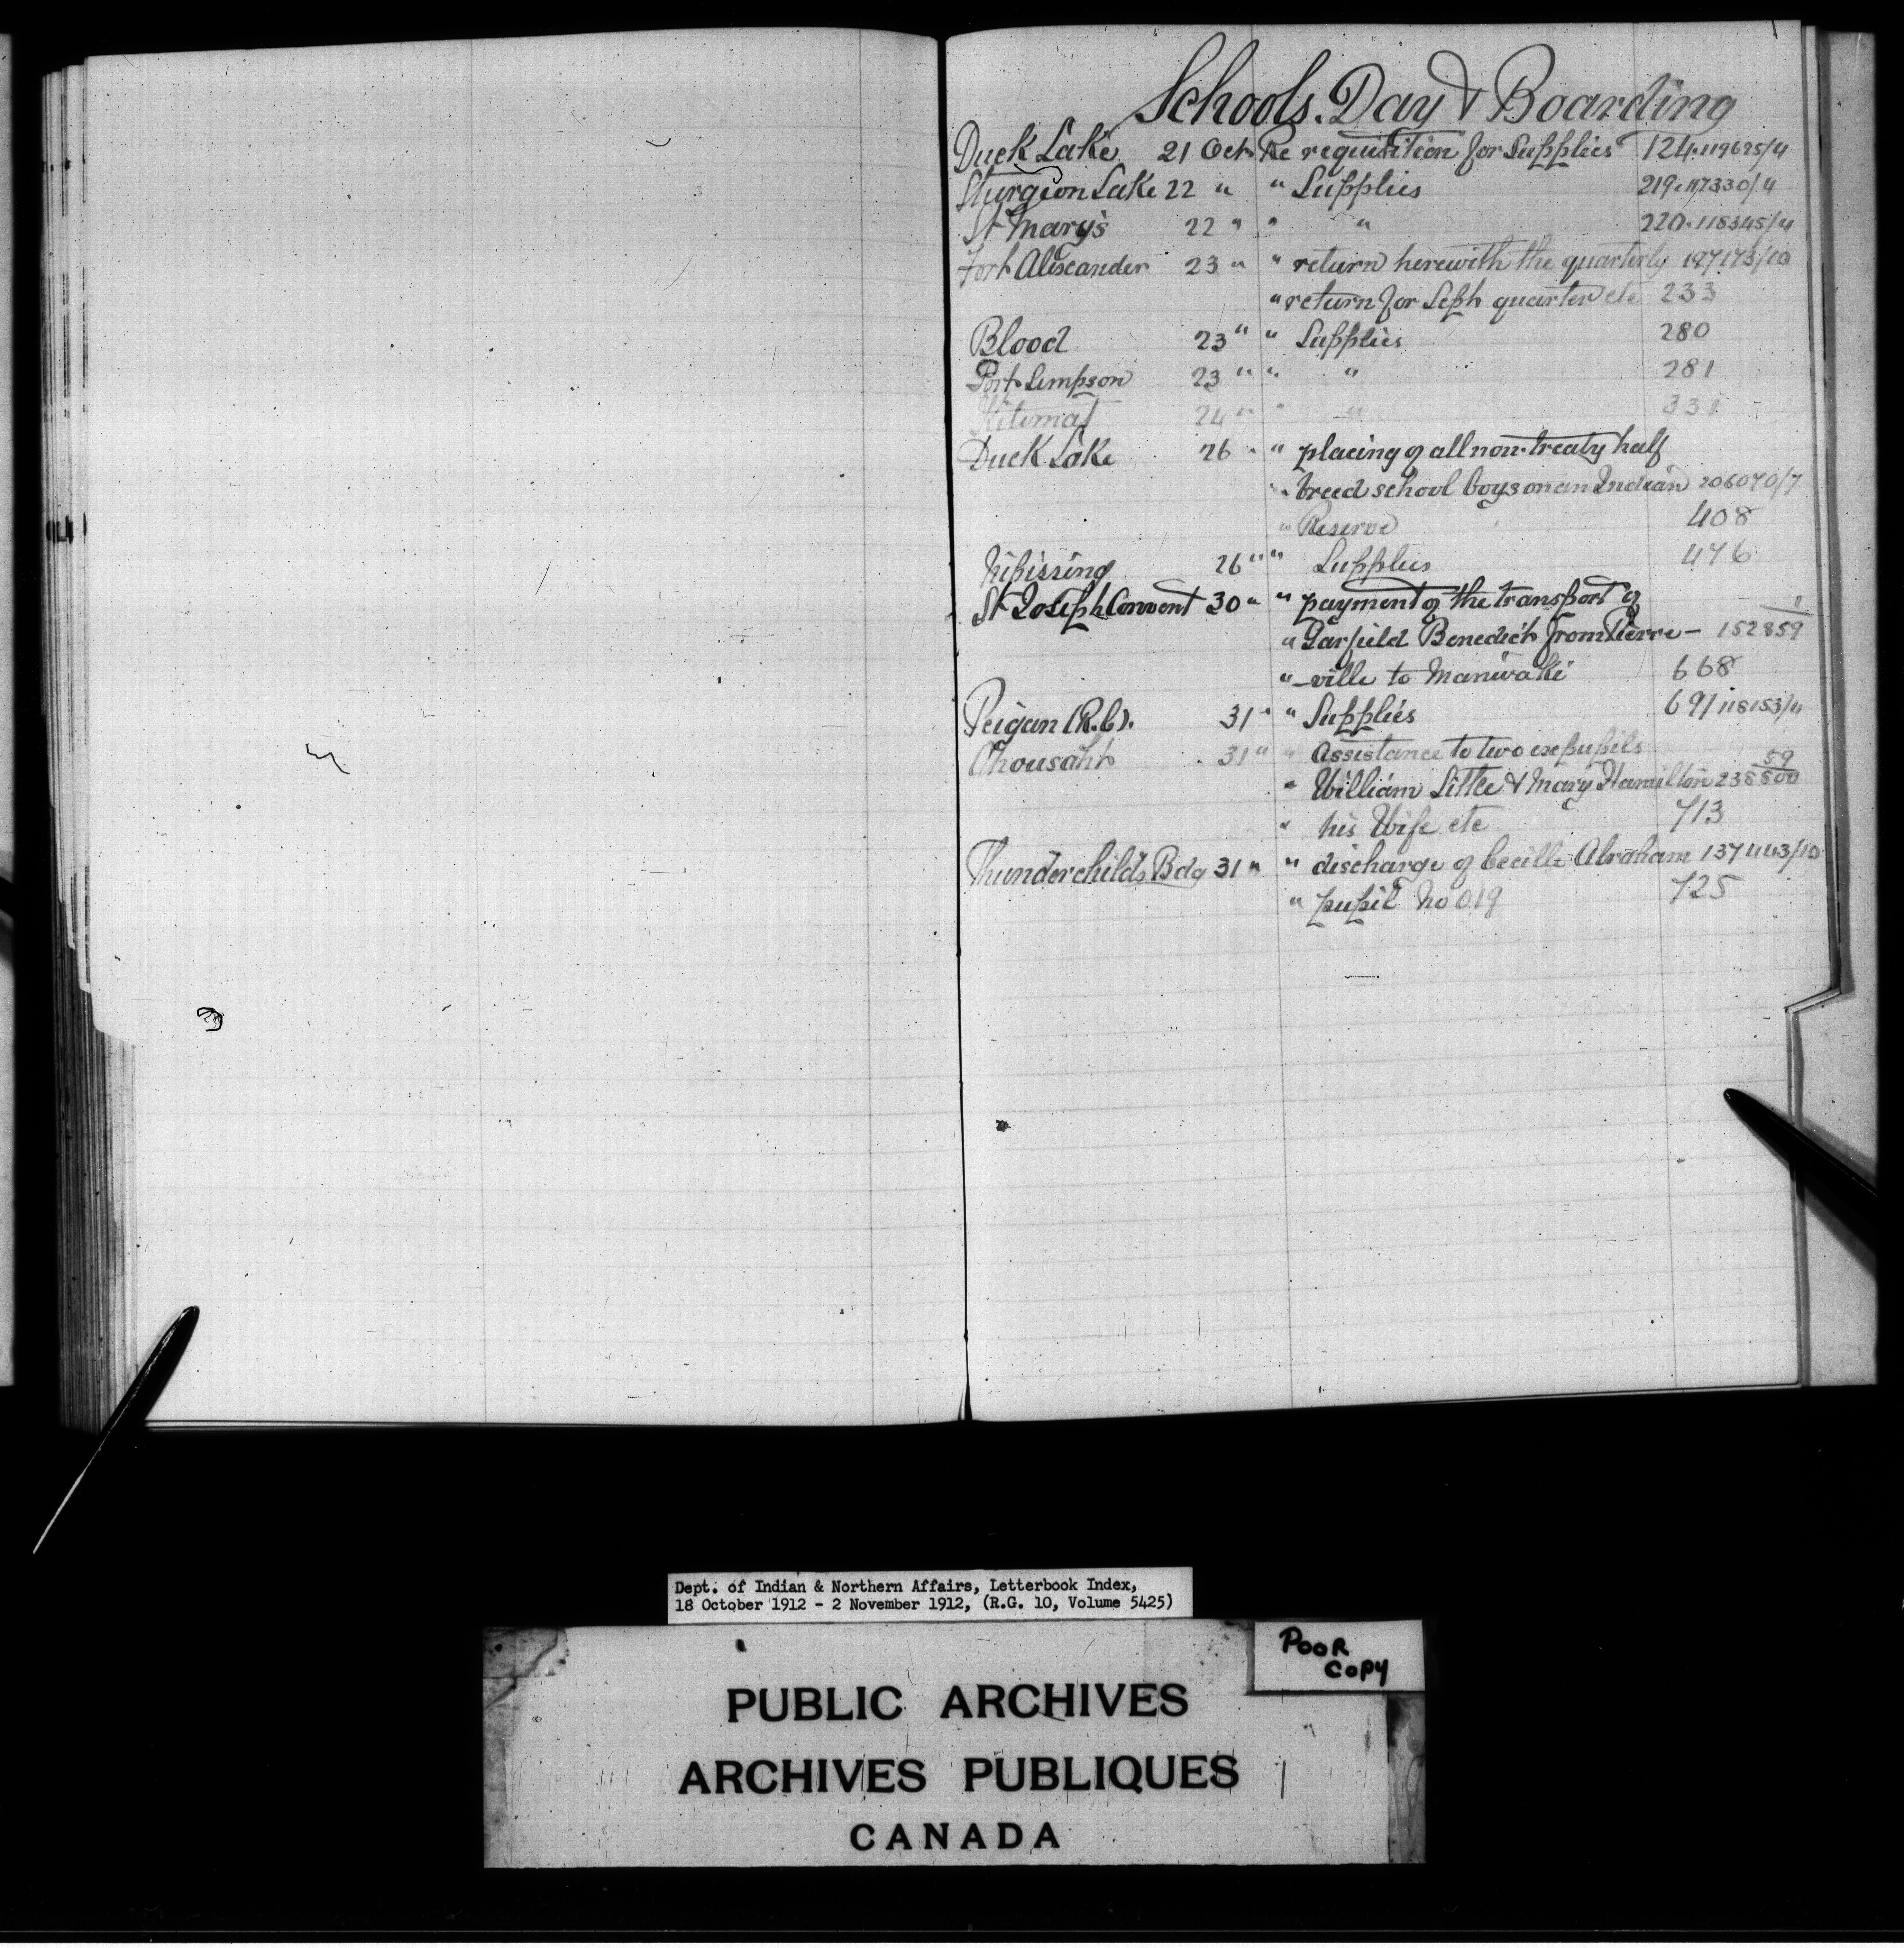 Schools. Day & Boarding
Duck Lake 21 Oct Re requisition for Supplies 124.119695/4
Sturgeon Lake 22 " " Supplies 219.117330/4
St Mary's 22 " " " 220.118345/4
Fort Alexander 23 " " return herewith the quarterly 187173/10
" return for Sept quarter etc 233
Blood 23 " " Supplies 280
Port Simpson 23 " " " 281
Kitimat 24 " " "
Duck Lake 26 " " placing of all non-treaty half
" breed school boys on an Indian 206070/7
" Reserve 408
Nipissing 26 " " Supplies 476
St Joseph Convent 30 " " payment of the transport of
" Garfield Benedict from Pierre- 152859
" -ville to Maniwaki 668
Peigan (R.C). 31 " " Supplies 691 118153/4
Ahousaht 31 " " Assistance to two expupils 59
" William Little & Mary Hamilton 238800
" his Wife etc 713
Thunderchild's Bdg 31 " " discharge of Cecille Abraham 137443/10
" pupil No 019 725
Dept. of Indian & Northern Affairs, Letterbook Index,
18 October 1912 - 2 November 1912, (R.G. 10, Volume 5425)
POOR
COPY
PUBLIC ARCHIVES
ARCHIVES PUBLIQUES
CANADA